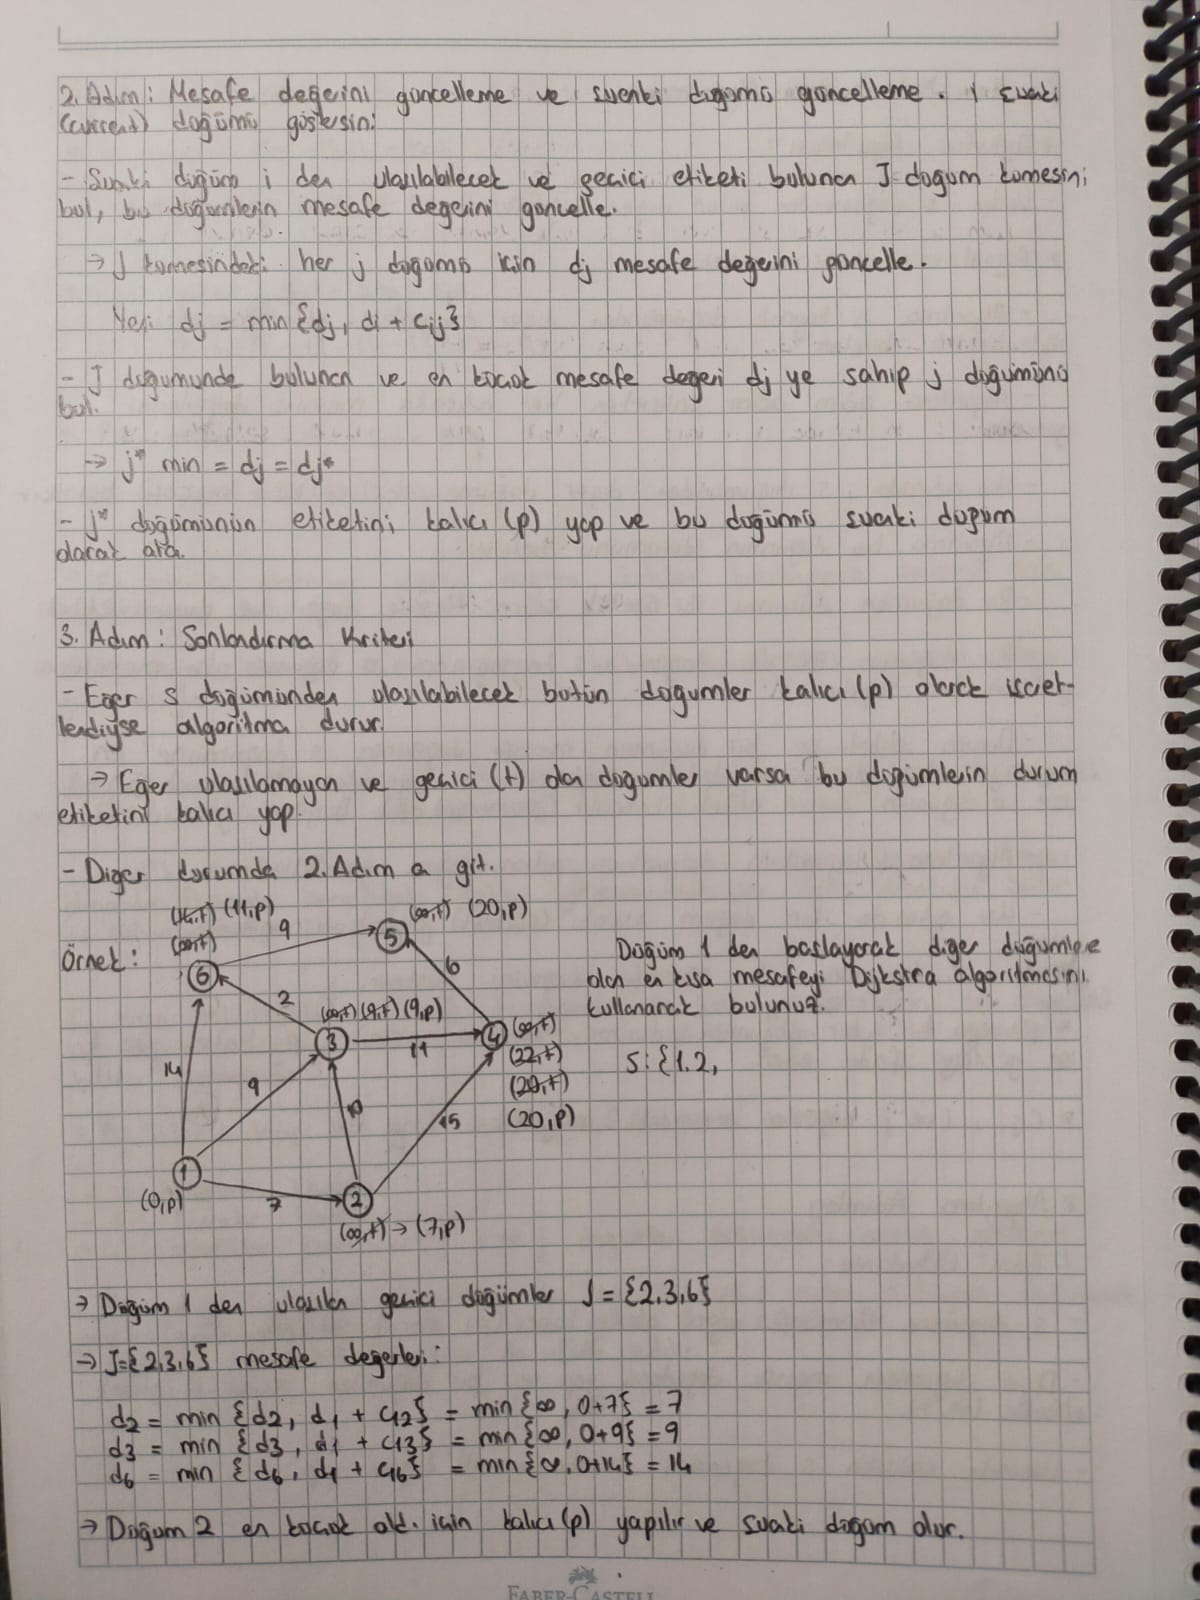 2. Adım: Mesafe değerini güncelleme ve suanki düğümü güncelleme. i suaki
(current) düğümü göstersin:
- Suaki düğüm i den ulaşılabilecek ve gecici etiketi bulunan J düğüm kümesini
bul, bu düğümlerin mesafe değerini güncelle.
→ J kümesindeki her j düğümü icin dj mesafe değerini güncelle.
Yeni dj = min {dj, di + cij}
- J düğümünde bulunan ve en kücük mesafe değeri dj ye sahip j düğümünü
bul.
→ j* min = dj = dj*
- j* düğümünün etiketini kalıcı (p) yap ve bu düğümü suanki düğüm
olarak ata.
3. Adım: Sonlandırma Kriteri
- Eğer s düğümünden ulaşılabilecek bütün düğümler kalıcı (p) olarak isaret-
lendiyse algoritma durur.
→ Eğer ulaşılamayan ve gecici (t) olan düğümler varsa bu düğümlerin durum
etiketini kalıcı yap.
- Diğer durumda 2. Adım a git.
(14,t) (11,p)
(∞,t)
9
(∞,t) (20,p)
Örnek:
6
5
6
Düğüm 1 den baslayarak diğer düğümlere
olan en kısa mesafeyi Dijkstra algoritmasını
kullanarak bulunuz.
2
(∞,t) (9,t) (9,p)
3
11
4
(∞,t)
(22,t)
(20,t)
(20,p)
S: {1.2,
14
9
10
15
1
(0,p)
7
2
(∞,t) → (7,p)
→ Düğüm 1 den ulasılan gecici düğümler J = {2,3,6}
→ J={2,3,6} mesafe değerleri:
d2 = min {d2, d1 + c12} = min {∞, 0+7} = 7
d3 = min {d3, d1 + c13} = min {∞, 0+9} = 9
d6 = min {d6, d1 + c16} = min {∞, 0+14} = 14
→ Düğüm 2 en kücük old. icin kalıcı (p) yapılır ve suaki düğüm olur.
FABER-CASTELL